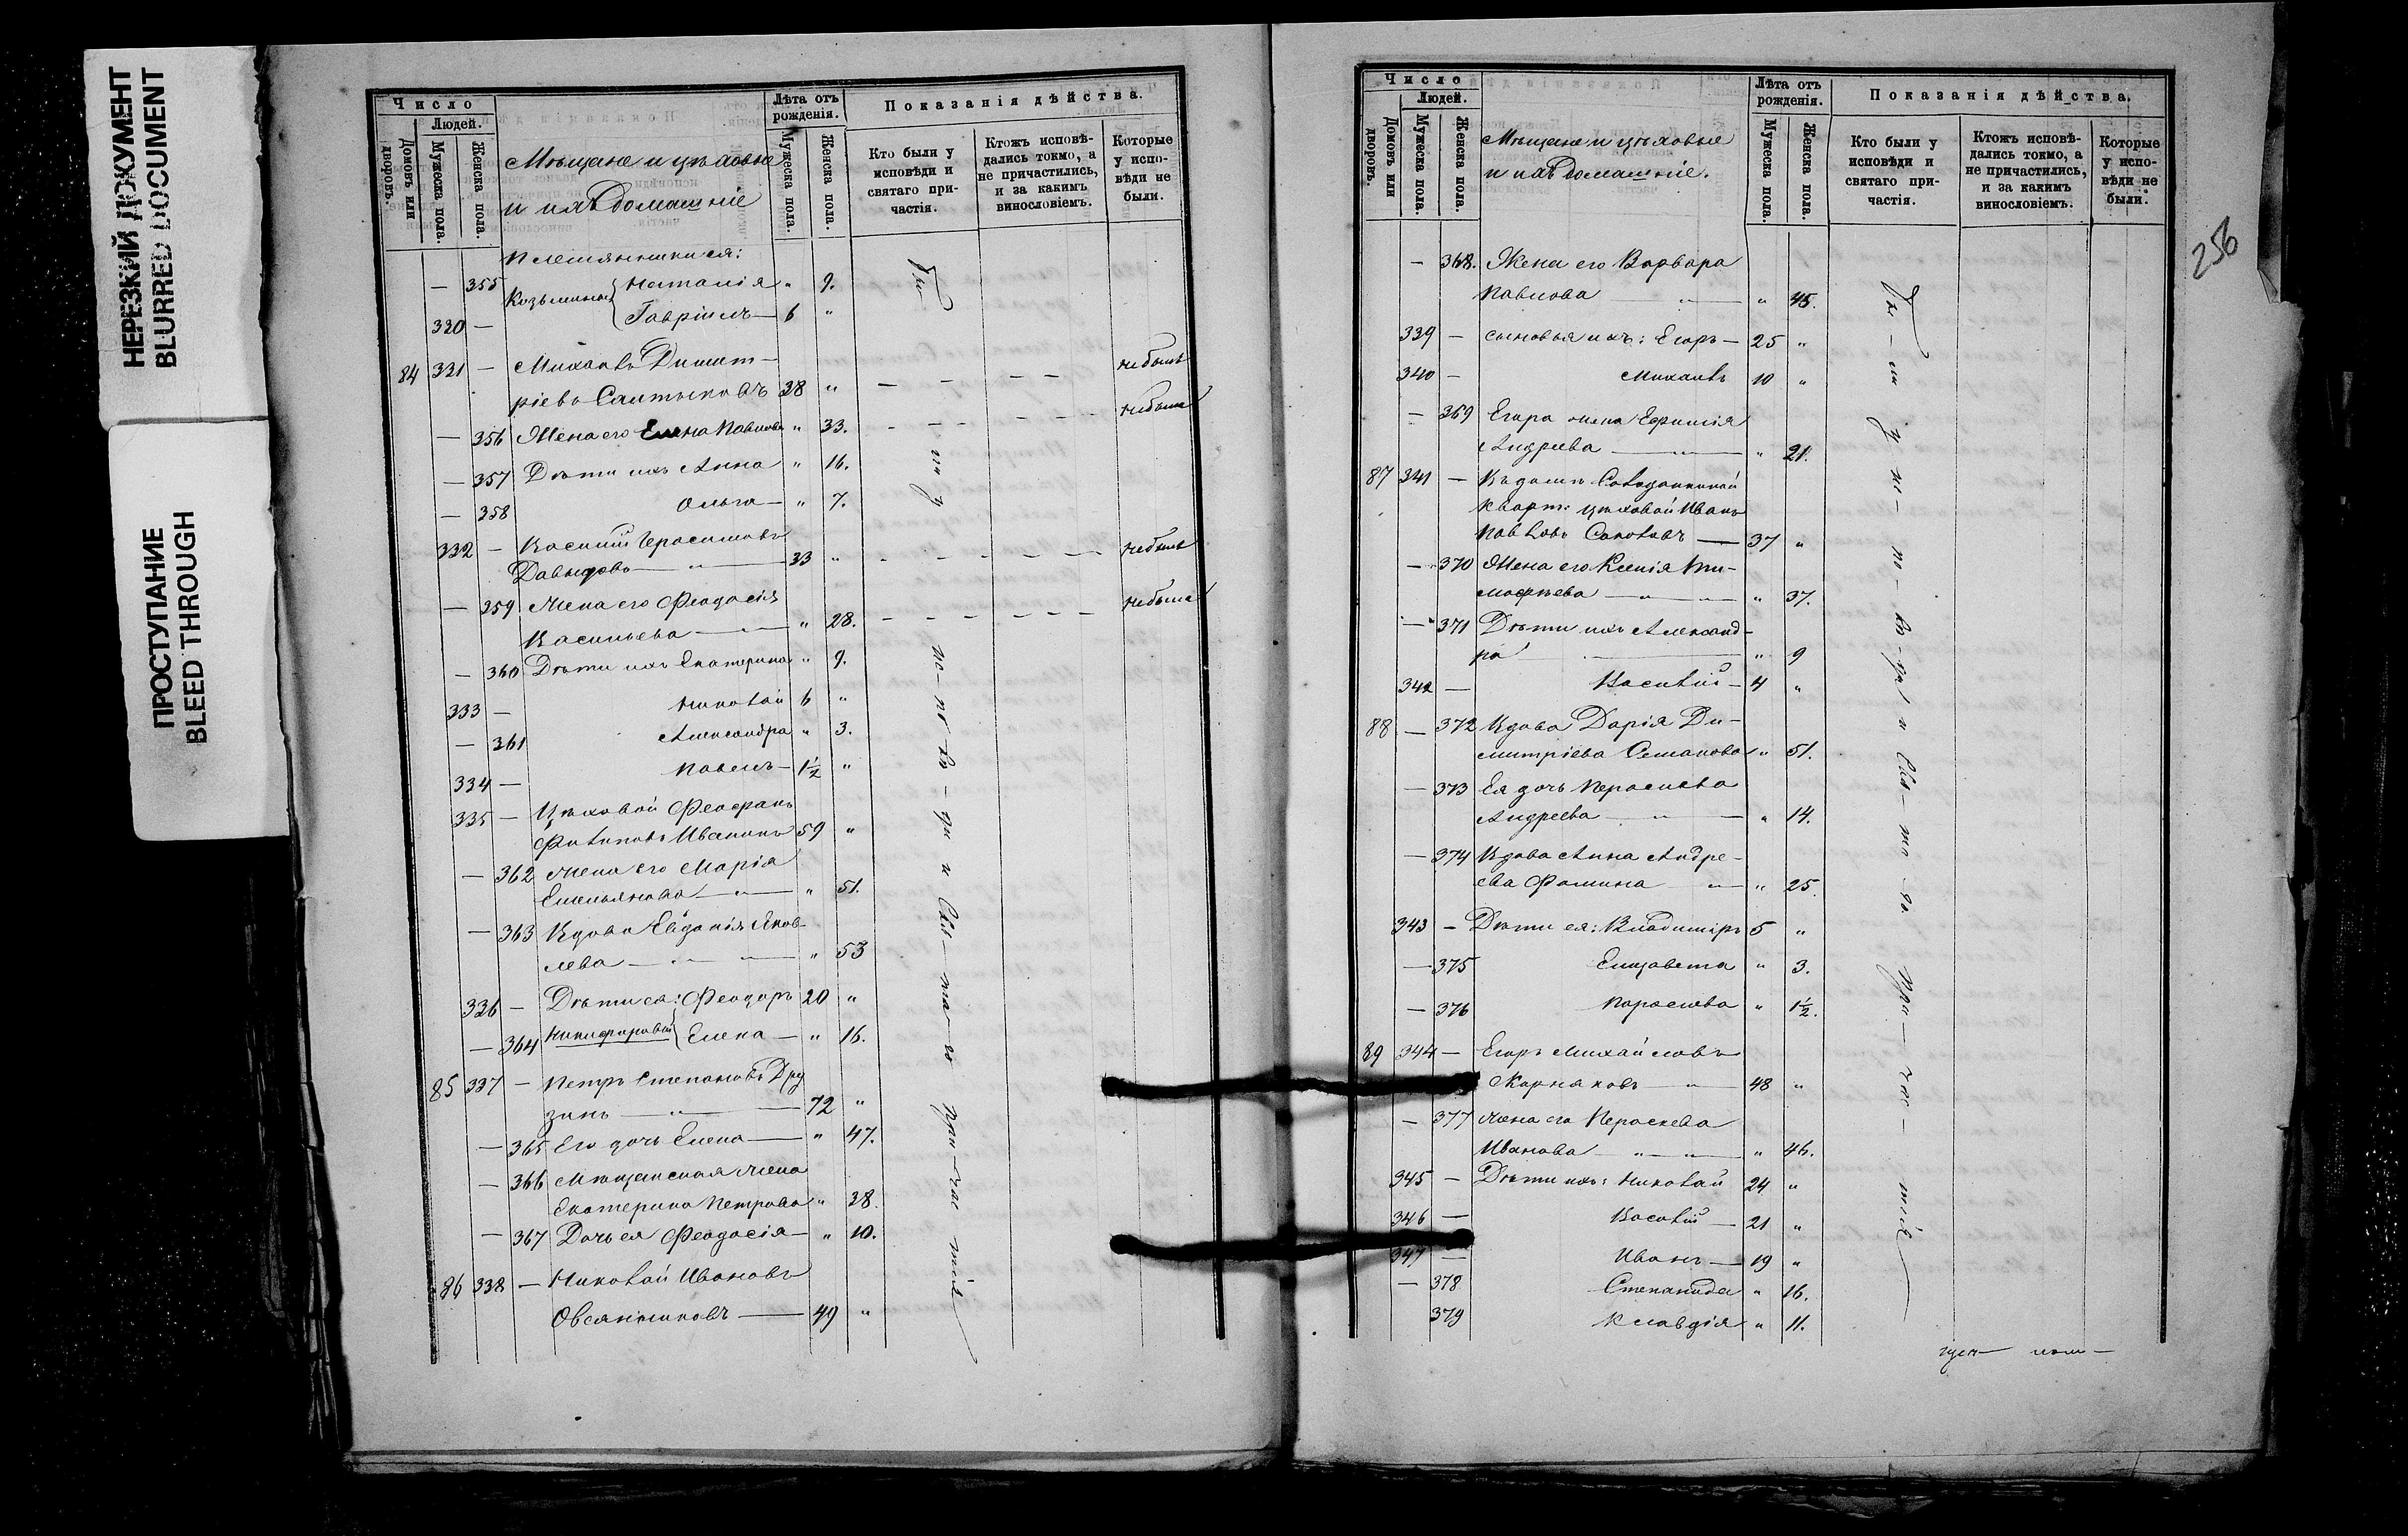 НЕРЕЗКИЙ ДОКУМЕНТ
BLURRED DOCUMENT
ПРОСТУПАНИЕ
BLEED THROUGH
Число
Людей.
Домовъ или дворовъ.
Мужеска пола.
Женска пола.
Мѣщане и цѣховые
и ихъ домашніе
Лѣта отъ рожденія.
Мужеска пола.
Женска пола.
Показанія дѣйства.
Кто были у исповѣди и святаго причастія.
Ктожъ исповѣдались токмо, а не причастились, и за какимъ винословіемъ.
Которые у исповѣди не были.
Племянники ея:
— 355 Козьмины { Наталія „ 9.
320 — Гавріилъ — 6 „
84 331 — Михаилъ Димит-
ріевъ Салтыковъ 38 „ — — — — не былъ
— 356 Жена его Елена Павлова „ 33. - - - - - - не была
— 357 Дѣти ихъ Анна „ 16.
— 358 Ольга — „ 7.
332 — Василій Герасимовъ
Давыдовъ — „ — 33 „ - - - - - - не былъ
— 359 Жена его Феодосія
Васильева — „ 28. - - - - - - не была
— 360 Дѣти ихъ Екатерина „ 9.
333 — Николай 6 „
— 361 Александра „ 3.
334 — Павелъ — 1½ „
335 — Цѣховой Феофанъ
Филиповъ Иванинъ 59 „
— 362 Жена его Марія
Емельянова — „ — „ 51.
— 363 Вдова Евдокія Яков-
лева — „ — „ 53
336 — Дѣти ея: Феодоръ 20 „
— 364 Никифоровы { Елена — „ 16.
85 337 — Петръ Степановъ Дру
зинъ — „ — 72 „
— 365 Его дочь Елена — „ 47.
— 366 Мѣщанская жена
Екатерина Петрова „ 38.
— 367 Дочь ея Феодосія — „ 10.
86 338 — Николай Ивановъ
Овсянниковъ — 49 „
Бы
ли
у
ис - по - вѣ - ди и Свя - та - го при - ча - стія
Число
Людей.
Домовъ или дворовъ.
Мужеска пола.
Женска пола.
Мѣщане и цѣховые
и ихъ домашніе.
Лѣта отъ рожденія.
Мужеска пола.
Женска пола.
Показанія дѣйства.
Кто были у исповѣди и святаго причастія.
Ктожъ исповѣдались токмо, а не причастились, и за какимъ винословіемъ.
Которые у исповѣди не были.
256
— 368. Жена его Варвара
Павлова — „ — „ 45.
339 — Сыновья ихъ: Егоръ — 25 „
340 — Михаилъ 10 „
— 369 Егора жена Евфимія
Андреева — „ — „ 21.
87 341 —
Кварт: цѣховой Иванъ
Павловъ Соколовъ — 37 „
— 370 Жена его Ксенія Ти-
мофѣева — „ — „ — „ 37.
— 371 Дѣти ихъ Александ-
ра — „ 9
342 — Василій — 4 „
88 — 372 Вдова Дарія Ди-
митріева Семакова „ 51.
— 373 Ея дочь Параскева
Андреева — „ — „ 14.
— 374 Вдова Анна Андре-
ева Фомина — „ — „ 25
343 — Дѣти ея: Владиміръ 5 „
— 375 Елизавета „ 3.
— 376 Параскева „ 1½.
89 344 — Егоръ Михайловъ
Жарнаковъ — „ 48 „
— 377 Жена его Параскева
Иванова — „ — „ — „ 46.
345 — Дѣти ихъ: Николай 24 „
346 — Василій — 21 „
347 — Иванъ — 19 „
— 378 Степанида „ 16.
379 Клавдія „ 11.
Бы - ли у ис - по - вѣ - ди и Свя - та - го при - ча - стія